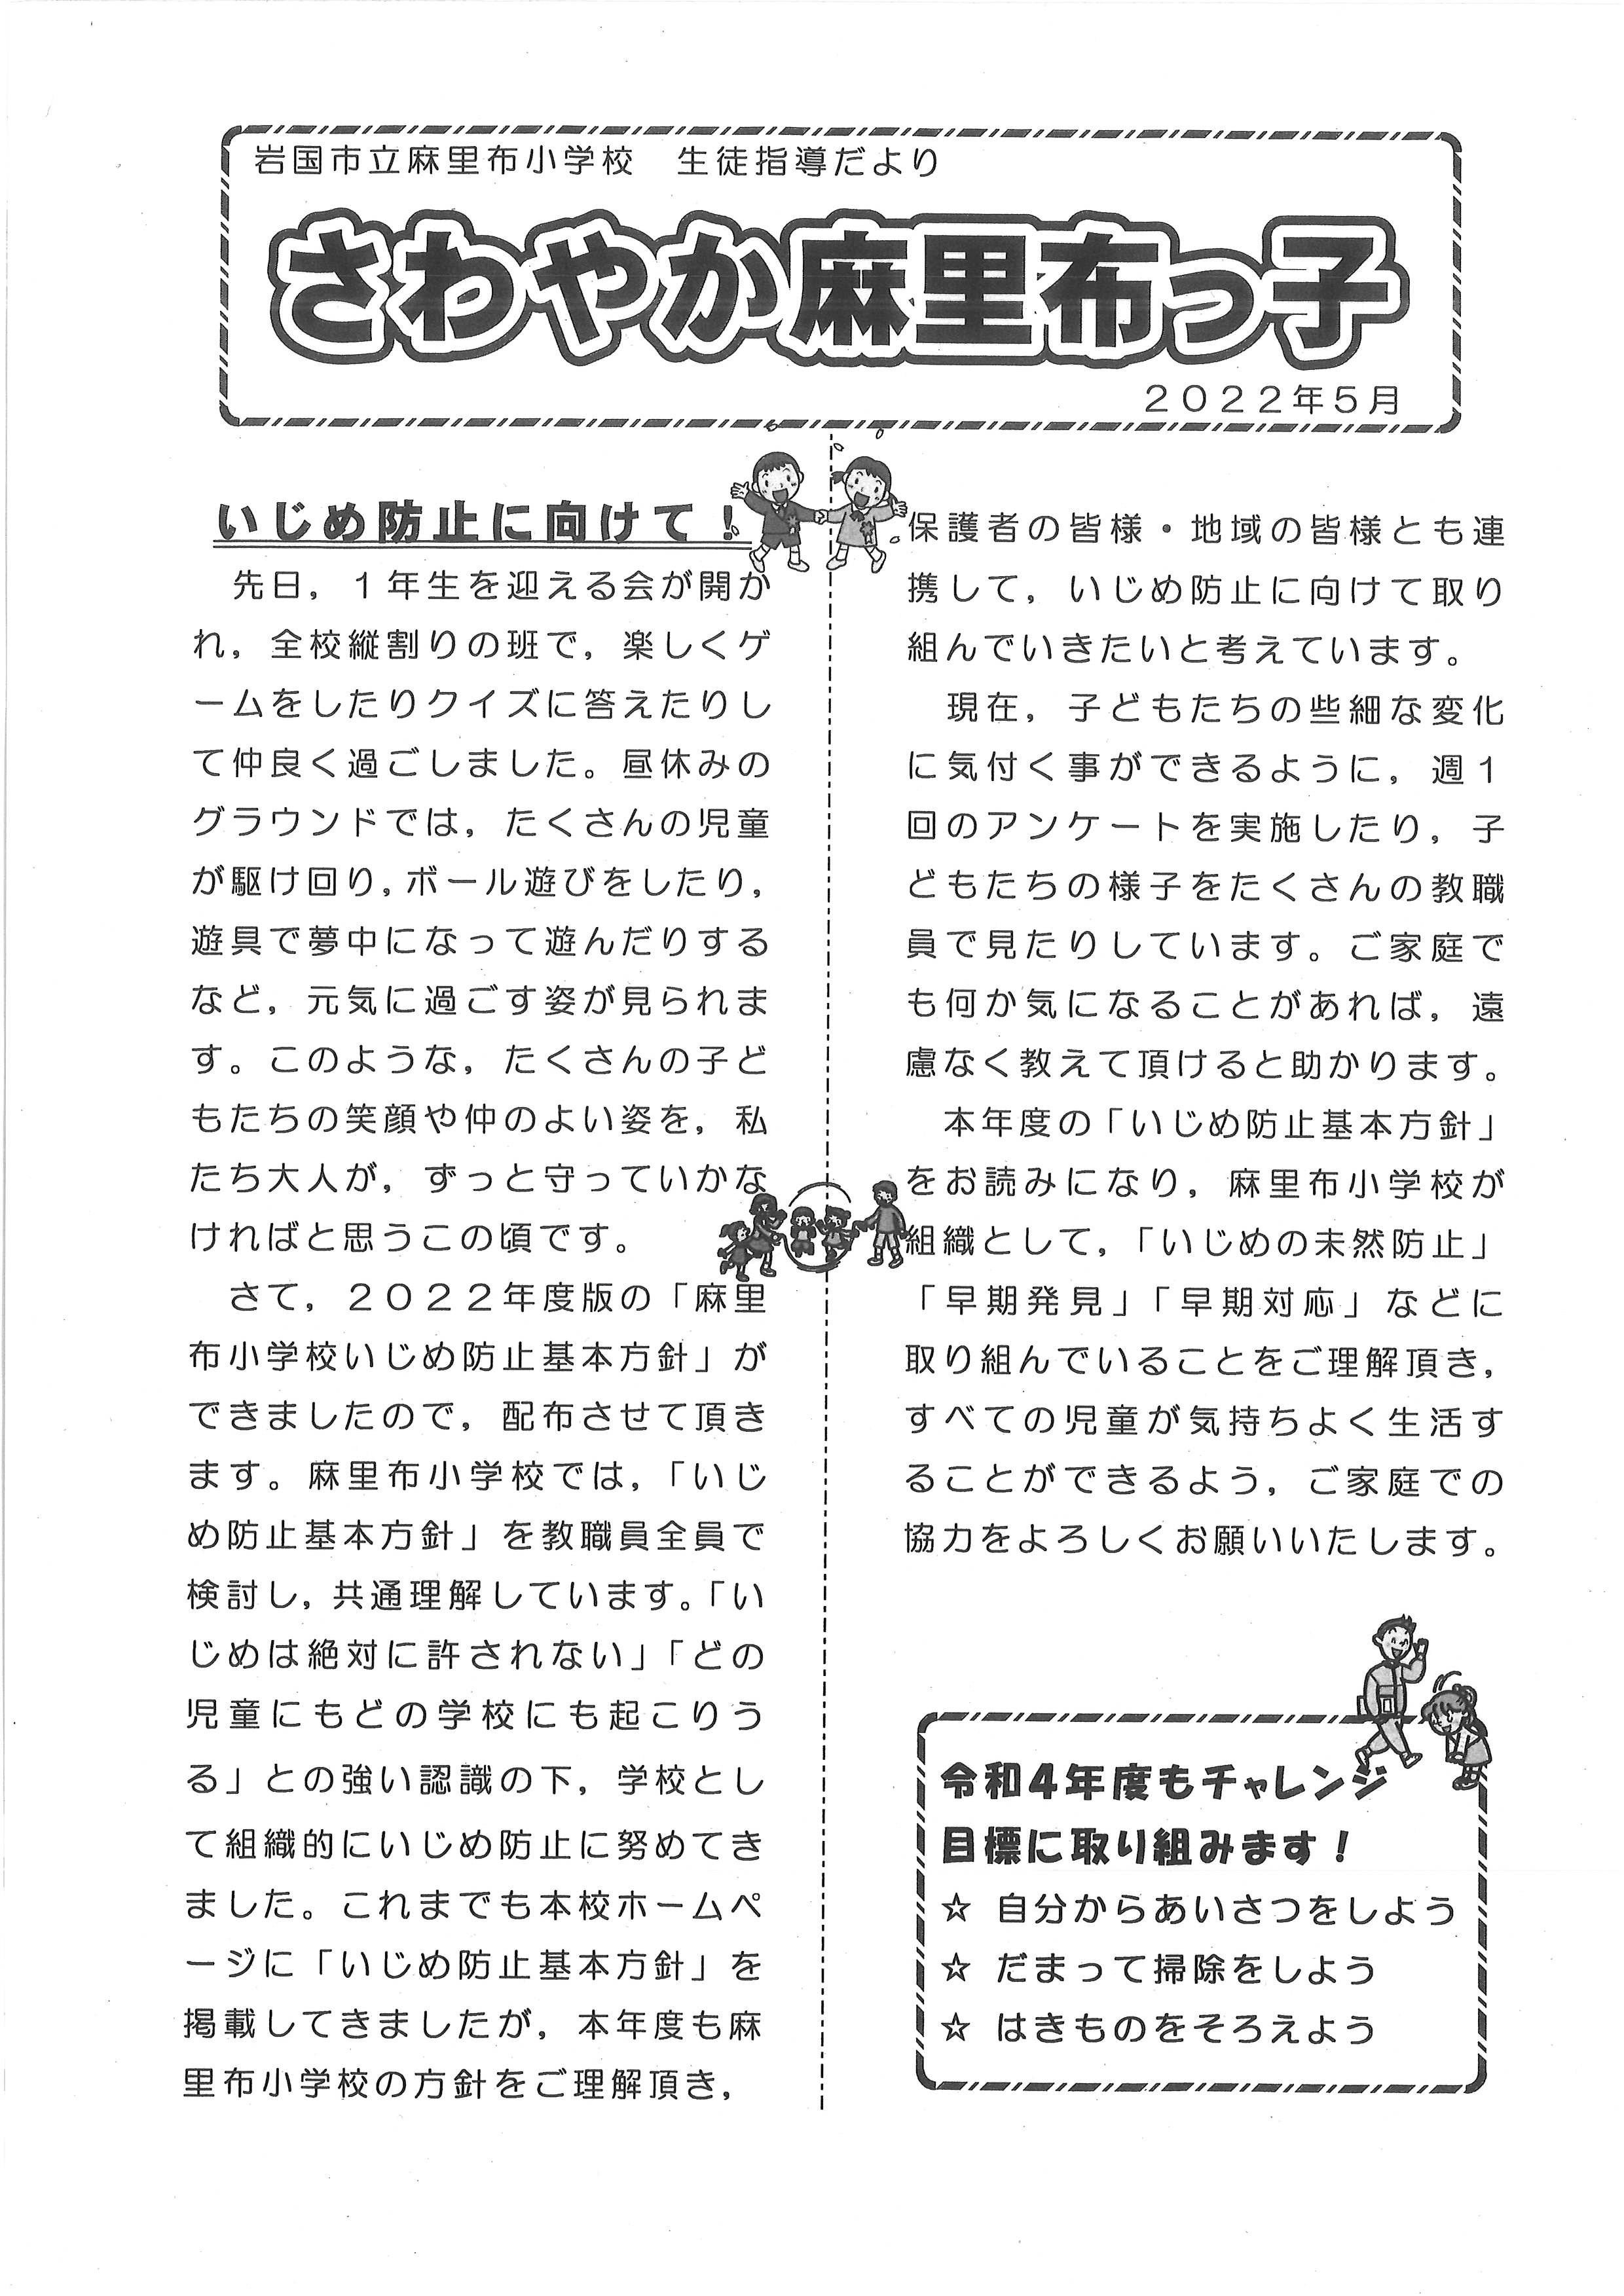 岩国市立麻里布小学校　生徒指導だより
さわやか麻里布っ子
２０２２年５月
いじめ防止に向けて！
　先日，１年生を迎える会が開か
れ，全校縦割りの班で，楽しくゲ
ームをしたりクイズに答えたりし
て仲良く過ごしました。昼休みの
グラウンドでは，たくさんの児童
が駆け回り，ボール遊びをしたり，
遊具で夢中になって遊んだりする
など，元気に過ごす姿が見られま
す。このような，たくさんの子ど
もたちの笑顔や仲のよい姿を，私
たち大人が，ずっと守っていかな
ければと思うこの頃です。
　さて，２０２２年度版の「麻里
布小学校いじめ防止基本方針」が
できましたので，配布させて頂き
ます。麻里布小学校では，「いじ
め防止基本方針」を教職員全員で
検討し，共通理解しています。「い
じめは絶対に許されない」「どの
児童にもどの学校にも起こりう
る」との強い認識の下，学校とし
て組織的にいじめ防止に努めてき
ました。これまでも本校ホームペ
ージに「いじめ防止基本方針」を
掲載してきましたが，本年度も麻
里布小学校の方針をご理解頂き，
保護者の皆様・地域の皆様とも連
携して，いじめ防止に向けて取り
組んでいきたいと考えています。
　現在，子どもたちの些細な変化
に気付く事ができるように，週１
回のアンケートを実施したり，子
どもたちの様子をたくさんの教職
員で見たりしています。ご家庭で
も何か気になることがあれば，遠
慮なく教えて頂けると助かります。
　本年度の「いじめ防止基本方針」
をお読みになり，麻里布小学校が
組織として，「いじめの未然防止」
「早期発見」「早期対応」などに
取り組んでいることをご理解頂き，
すべての児童が気持ちよく生活す
ることができるよう，ご家庭での
協力をよろしくお願いいたします。
令和４年度もチャレンジ
目標に取り組みます！
☆ 自分からあいさつをしよう
☆ だまって掃除をしよう
☆ はきものをそろえよう